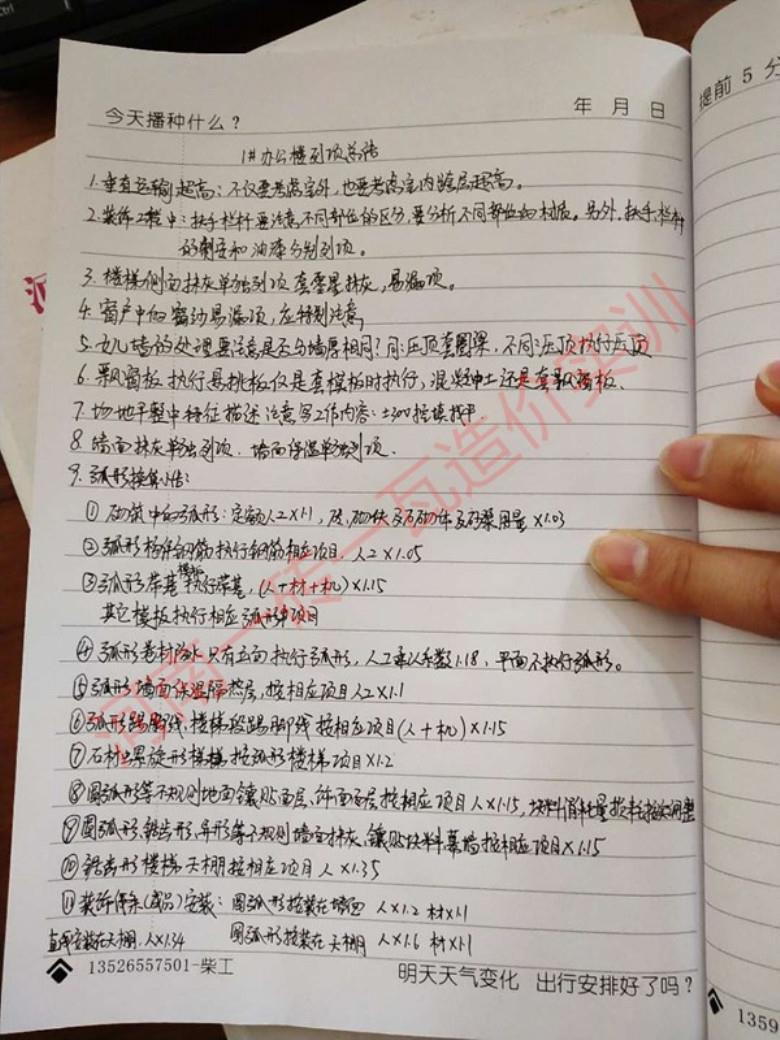 今天播种什么？
年 月 日
提前 5 分
1#办公楼列项总结
1.垂直运输超高：不仅要考虑室外，也要考虑室内跨层超高。
2.装饰工程中：扶手栏杆要注意不同部位的区分，要分析不同部位的材质。另外，扶手、栏杆
的制安和油漆分别列项。
3.楼梯侧面抹灰单独列项套零星抹灰，易漏项。
4.窗户中的窗动易漏项，应特别注意
5.女儿墙的处理要注意是否与墙厚相同？同:压顶套圈梁，不同:压顶执行压顶
6.飘窗板执行悬挑板仅是套模板时执行，混凝土还是套飘窗板、
7.场地平整中特征描述注意写工作内容:±300挖填找平
8.墙面抹灰单独列项.墙面保温单独列项.
9.弧形换算小结：
①砌筑中的弧形：定额人工×1.1，砖、砌块及石砌体及砂浆用量×1.03
②弧形构件钢筋执行钢筋相应项目.人工×1.05
③弧形带基模板执行带基，(人+材+机)×1.15
其它模板执行相应弧形项目
④弧形卷材防水只有立面执行弧形，人工乘以系数1.18，平面不执行弧形。
⑤弧形墙面保温隔热层,按相应项目人工×1.1
⑥弧形踢脚线、楼梯段踢脚线按相应项目(人+机)×1.15
⑦石材螺旋形楼梯按弧形楼梯项目×1.2
⑧圆弧形等不规则地面镶贴面层、饰面面层按相应项目人×1.15，块料消耗量损耗按实调整
⑨圆弧形、锯齿形、异形等不规则墙面抹灰、镶贴块料、幕墙按相应项目×1.15
⑩锯齿形楼梯天棚按相应项目人×1.35
⑪装饰条(成品)安装：圆弧形按装在墙面 人×1.2 材×1.1
直形安装在天棚，人×1.34 圆弧形按装在天棚 人×1.6 材×1.1
13526557501-柴工
明天天气变化 出行安排好了吗？
1359
河南一砖一瓦造价实训